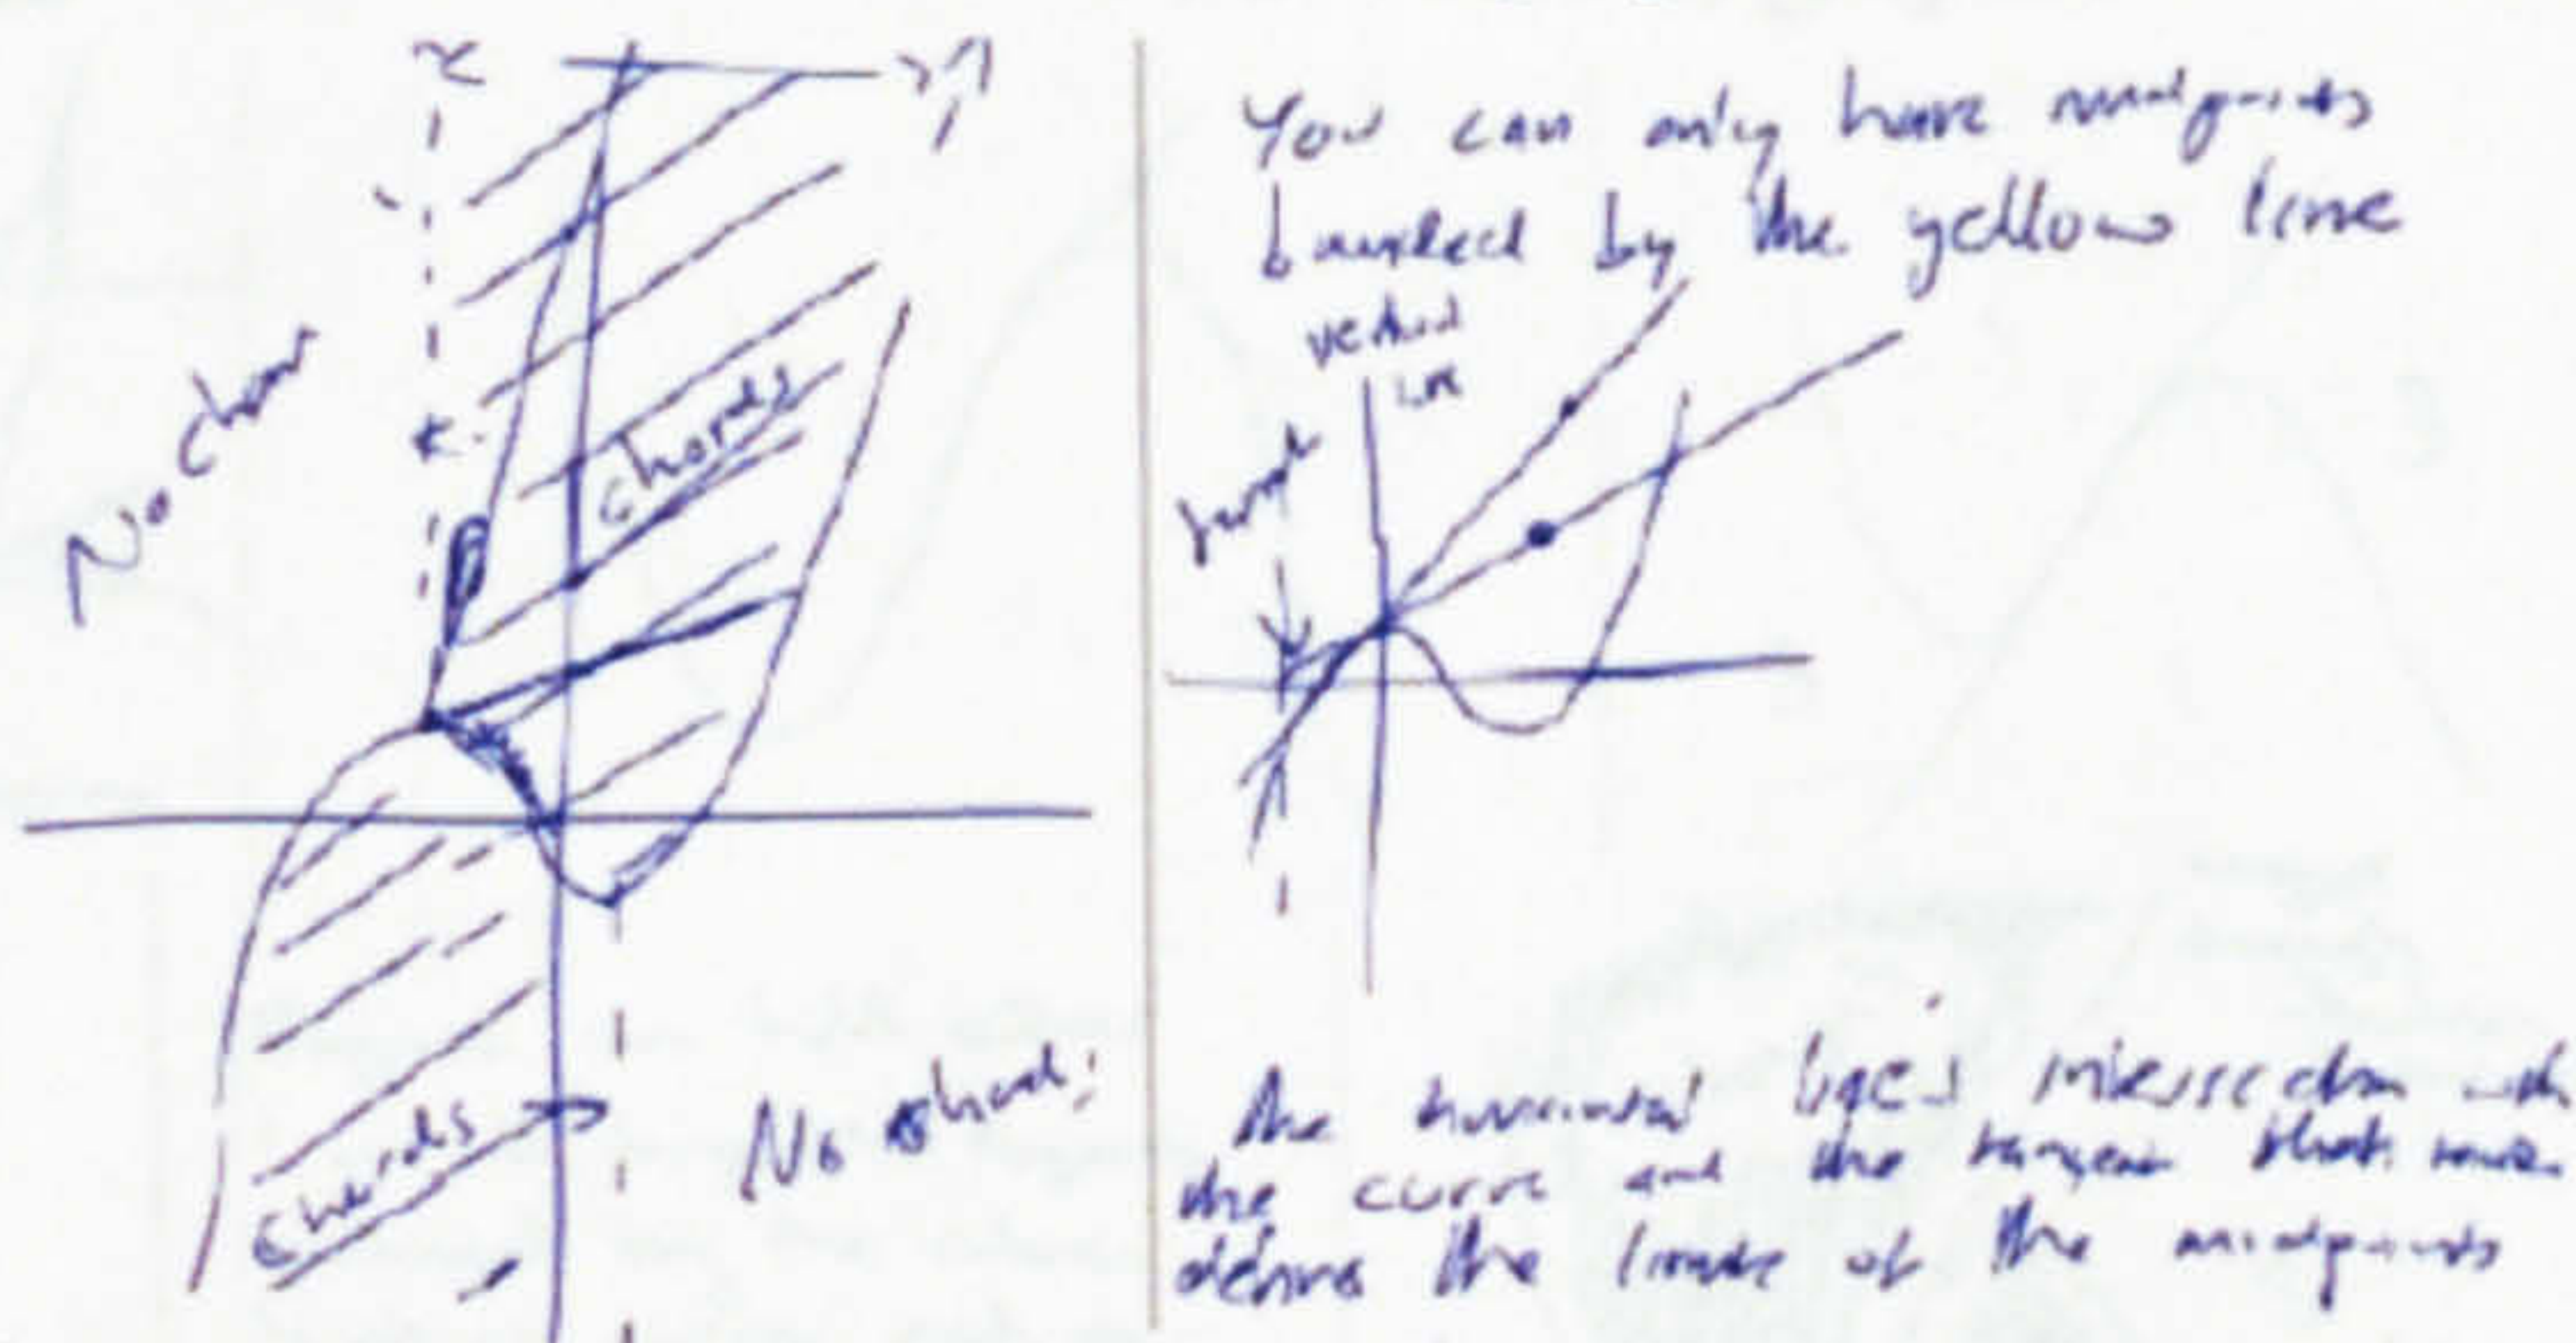 No chor
chords
chords
You can only have midpoints
bounded by the yellow line
vertical
line
the horizontal line's intersection with
the curve and the tangent that
define the limits of the midpoints